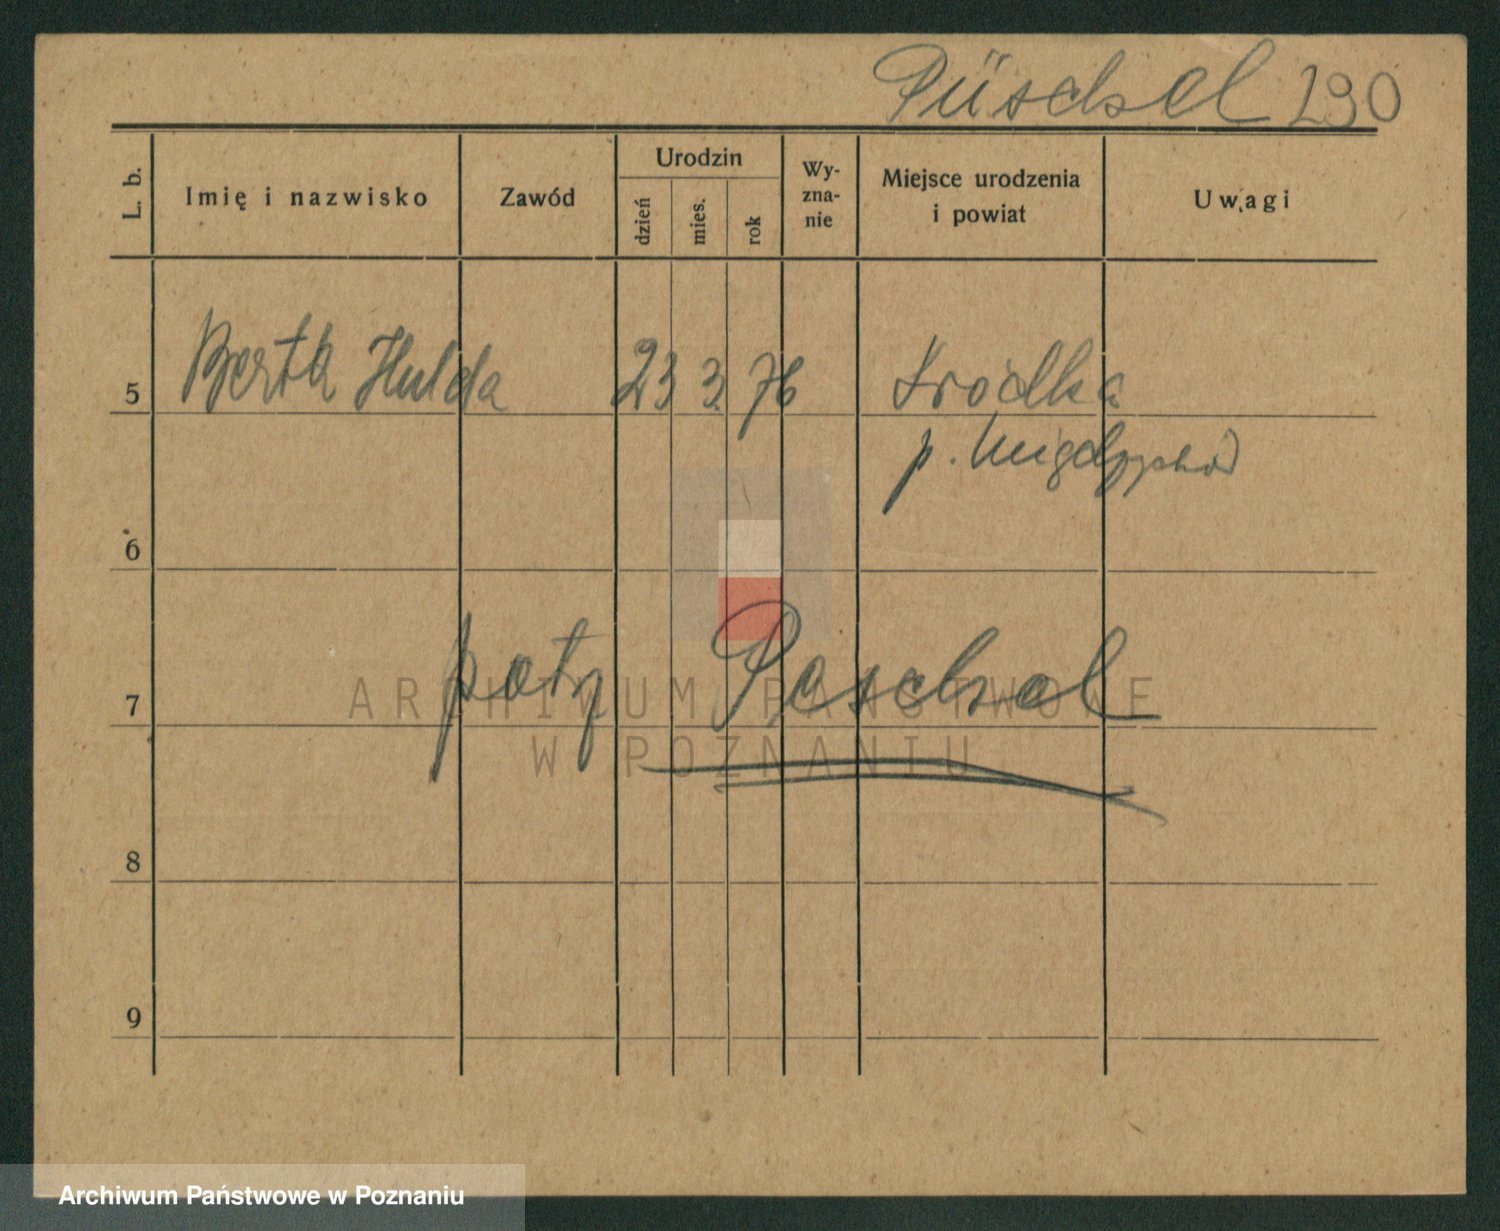 Püschel 290
L. b.
Imię i nazwisko
Zawód
Urodzin
dzień
mies.
rok
Wy-
zna-
nie
Miejsce urodzenia
i powiat
Uwagi
5 Berta Hulda 23 3 76 Środka
p. Międzychód
6
7 patrz Peschel
8
9
ARCHIWUM PAŃSTWOWE
W POZNANIU
Archiwum Państwowe w Poznaniu